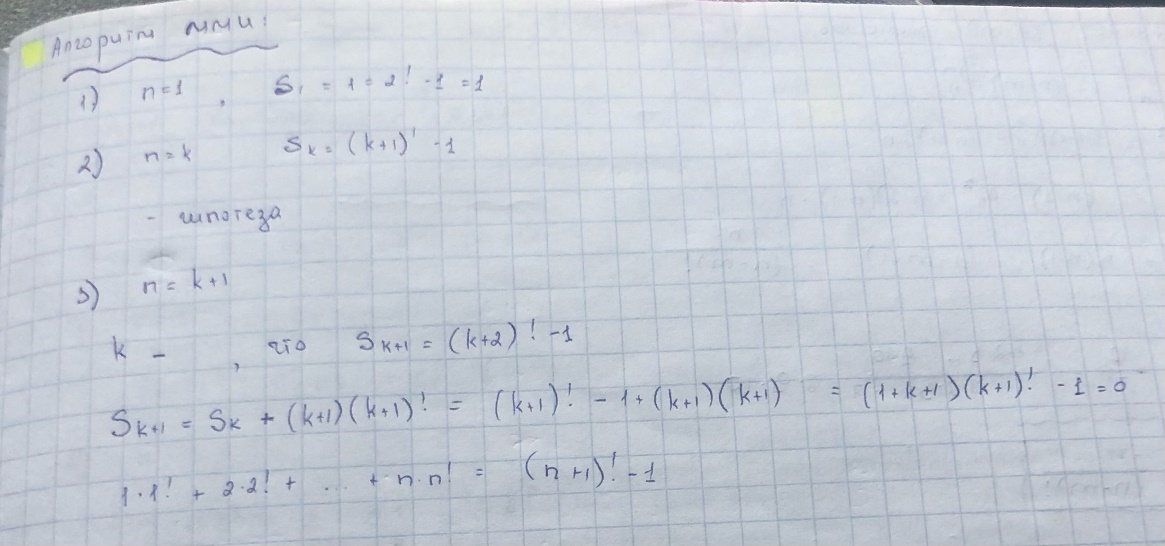 Алгоритм ММИ:
1) n=1 , S₁ = 1 = 2! -1 =1
2) n=k Sₖ = (k+1)! -1
- гипотеза
3) n = k+1
k - , что Sₖ₊₁ = (k+2)! -1
Sₖ₊₁ = Sₖ + (k+1)(k+1)! = (k+1)! - 1 + (k+1)(k+1) = (1+k+1)(k+1)! - 1 = 0
1·1! + 2·2! + ... + n·n! = (n+1)! -1